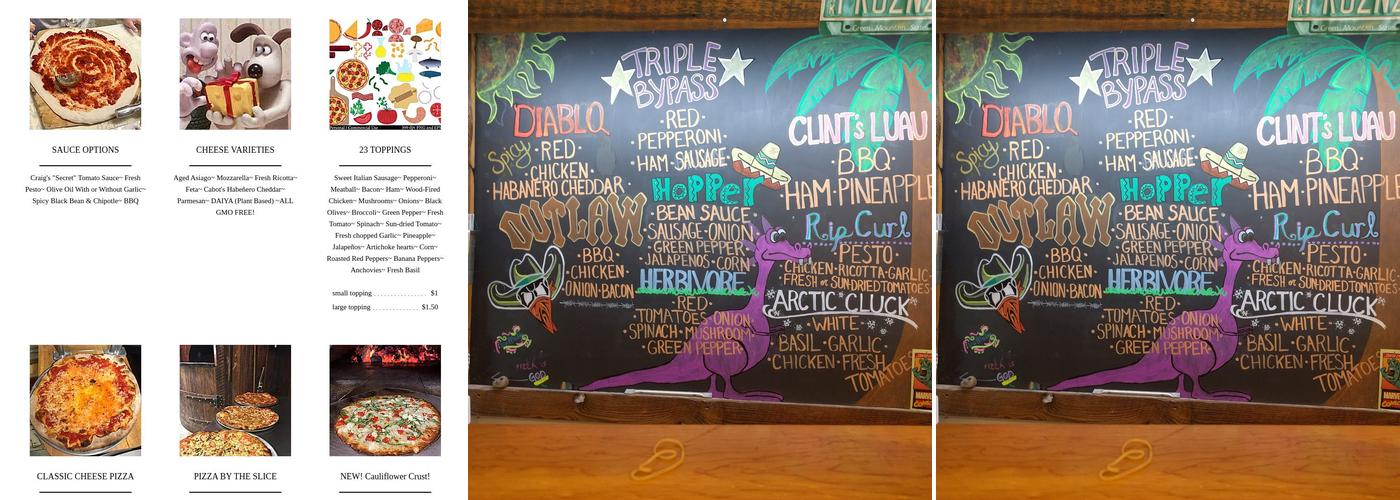 Personal / Commercial Use
SAUCE OPTIONS
Craig's "Secret" Tomato Sauce~ Fresh
Pesto~ Olive Oil With or Without Garlic~
Spicy Black Bean & Chipotle~ BBQ
CHEESE VARIETIES
Aged Asiago~ Mozzarella~ Fresh Ricotta~
Feta~ Cabot's Habeñero Cheddar~
Parmesan~ DAIYA (Plant Based) ~ALL
GMO FREE!
23 TOPPINGS
Sweet Italian Sausage~ Pepperoni~
Meatball~ Bacon~ Ham~ Wood-Fired
Chicken~ Mushrooms~ Onions~ Black
Olives~ Broccoli~ Green Pepper~ Fresh
Tomato~ Spinach~ Sun-dried Tomato~
Fresh chopped Garlic~ Pineapple~
Jalapeños~ Artichoke hearts~ Corn~
Roasted Red Peppers~ Banana Peppers~
Anchovies~ Fresh Basil
small topping $1
large topping $1.50
CLASSIC CHEESE PIZZA
PIZZA BY THE SLICE
NEW! Cauliflower Crust!
Green Mountain
TRIPLE
BYPASS
·RED·
PEPPERONI·
HAM·SAUSAGE
DIABLO
Spicy
·RED·
CHICKEN·
HABANERO CHEDDAR
HOPPER
BEAN SAUCE
SAUSAGE·ONION
GREEN PEPPER
JALAPENOS·CORN
OUTLAW
·BBQ·
CHICKEN·
ONION·BACON
HERBIVORE
·RED·
TOMATOES·ONION
SPINACH·MUSHROOM
GREEN PEPPER
CLINT'S LUAU
BBQ
HAM·PINEAPPLE
Rip Curl
·PESTO·
CHICKEN·RICOTTA·GARLIC
FRESH or SUN-DRIED TOMATOES
ARCTIC CLUCK
·WHITE·
BASIL·GARLIC·
CHICKEN·FRESH
TOMATOES
MARVEL
COMICS
Green Mountain
TRIPLE
BYPASS
·RED·
PEPPERONI·
HAM·SAUSAGE
DIABLO
Spicy
·RED·
CHICKEN·
HABANERO CHEDDAR
HOPPER
BEAN SAUCE
SAUSAGE·ONION
GREEN PEPPER
JALAPENOS·CORN
OUTLAW
·BBQ·
CHICKEN·
ONION·BACON
HERBIVORE
·RED·
TOMATOES·ONION
SPINACH·MUSHROOM
GREEN PEPPER
CLINT'S LUAU
BBQ
HAM·PINEAPPLE
Rip Curl
·PESTO·
CHICKEN·RICOTTA·GARLIC
FRESH or SUN-DRIED TOMATOES
ARCTIC CLUCK
·WHITE·
BASIL·GARLIC·
CHICKEN·FRESH
TOMATOES
MARVEL
COMICS